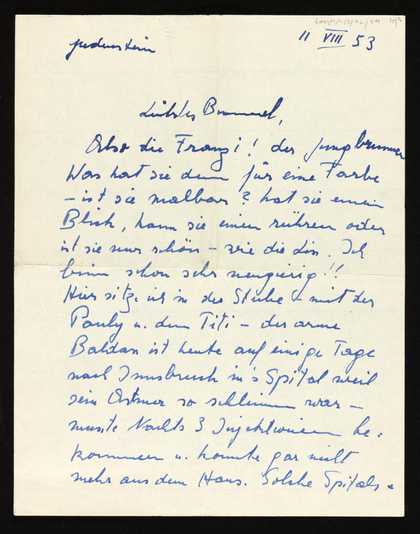 11 VIII 53
Judenstein
Liebstes Bommel,
Also die Franzi! der Jungbrunnen
Was hat sie denn für eine Farbe
– ist sie malbar? hat sie einen
Blick, kann sie einen rühren oder
ist sie nur schön – wie die Lis. Ich
binn schon sehr neugierig!!
Hier sitze ich in der Stube – mit der
Pauly u. dem Titi – der arme
Baldan ist heute auf einige Tage
nach Innsbruck in's Spital weil
sein Astma so schlimm war –
musste Nachts 3 Injektionen be-
kommen u. konnte gar nicht
mehr aus dem Haus. Solche Spitals-